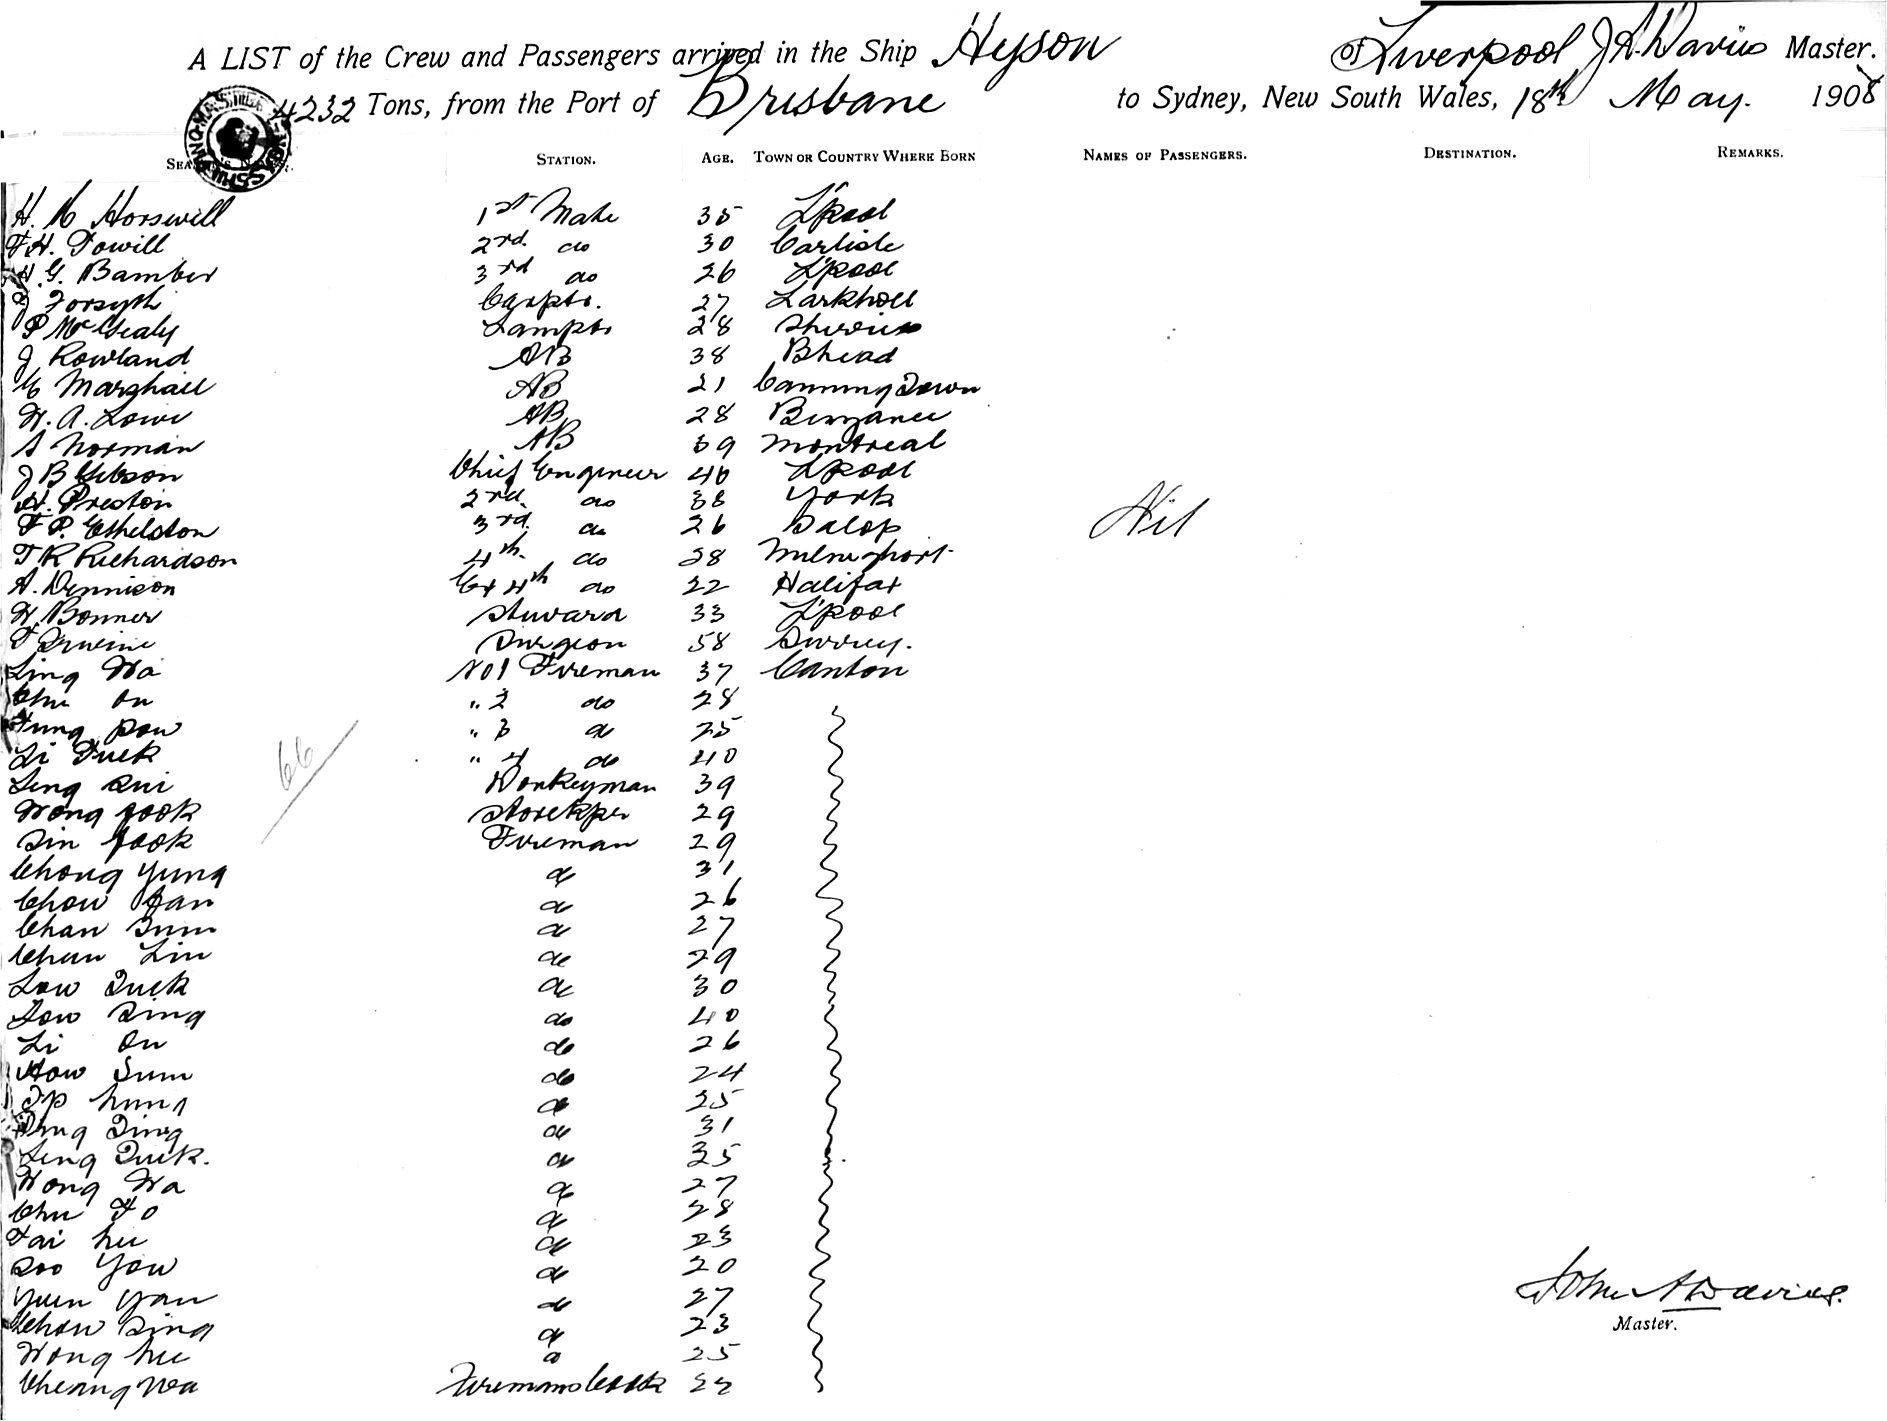 A LIST of the Crew and Passengers arrived in the Ship Hyson of Liverpool J A Davies Master.
4232 Tons, from the Port of Brisbane to Sydney, New South Wales, 18th May. 1908
STATION. AGE. TOWN OR COUNTRY WHERE BORN NAMES OF PASSENGERS. DESTINATION. REMARKS.
H. M Horswill 1st Mate 35 L'pool
F H. Towill 2nd do 30 Carlisle
H. G. Bamber 3rd do 26 L'pool
J Forsyth Carptr. 27 Larkhall
P McGealy Lamptr 28
J Rowland AB 38 Bhead
C Marshall AB 21 Canning Town
W. A. Lowe AB 28
S Norman AB 39 Montreal
J B Gibson Chief Engineer 40 L'pool
H. Preston 2nd. do 38 York
F P. Ethelston 3rd. do 26 Salop
Nil
T R Richardson 4th. do 28
A. Dennison Ex 4th do 22 Halifax
H. Bonner Steward 33 L'pool
T Irwine Surgeon 58 Surrey.
Ling Wa No 1 Fireman 37 Canton
Chu On " 2 do 28
Fung Pow " 3 do 25
Li Tuck " 4 do 40
Leng Sui Donkeyman 39
Wong Fook Storekpr 29
66
Sin Fook Fireman 29
Chong Yung do 31
Chow Fan do 26
Chan Sum do 27
Chun Lin do 29
Low Tuck do 30
Low Sing do 40
Li On do 26
How Sum do 24
Ip hung do 25
Ting do 31
Leng Tuck. do 35
Wong Wa do 27
Chu Fo do 28
Tai hee do 23
Soo Yow do 20
Yuen Yan do 27
Chow Sing do 23
John A Davies.
Master.
Wong hee do 25
Cheang Wa Firemans Cook 22